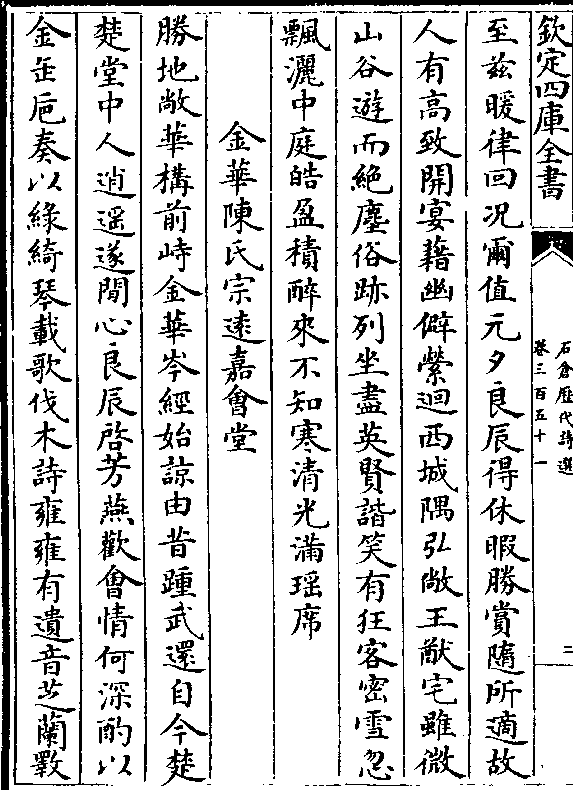 欽定四庫全書
石倉歷代詩選
卷三百五十一
二
至兹暖律回况爾值元夕良辰得休暇勝賞隨所適故
人有高致開宴藉幽僻縈迴西城隅弘敞王猷宅雖微
山谷遊而絶塵俗跡列坐盡英賢諧笑有狂客密雪忽
飄灑中庭皓盈積醉來不知寒清光滿瑶席
金華陳氏宗逺嘉會堂
勝地敞華構前峙金華岑經始諒由昔踵武還自今楚
楚堂中人逍遥遂閒心良辰啓芳燕歡會情何深酌以
金缶巵奏以緑綺琴載歌伐木詩雍雍有遺音芝蘭斁